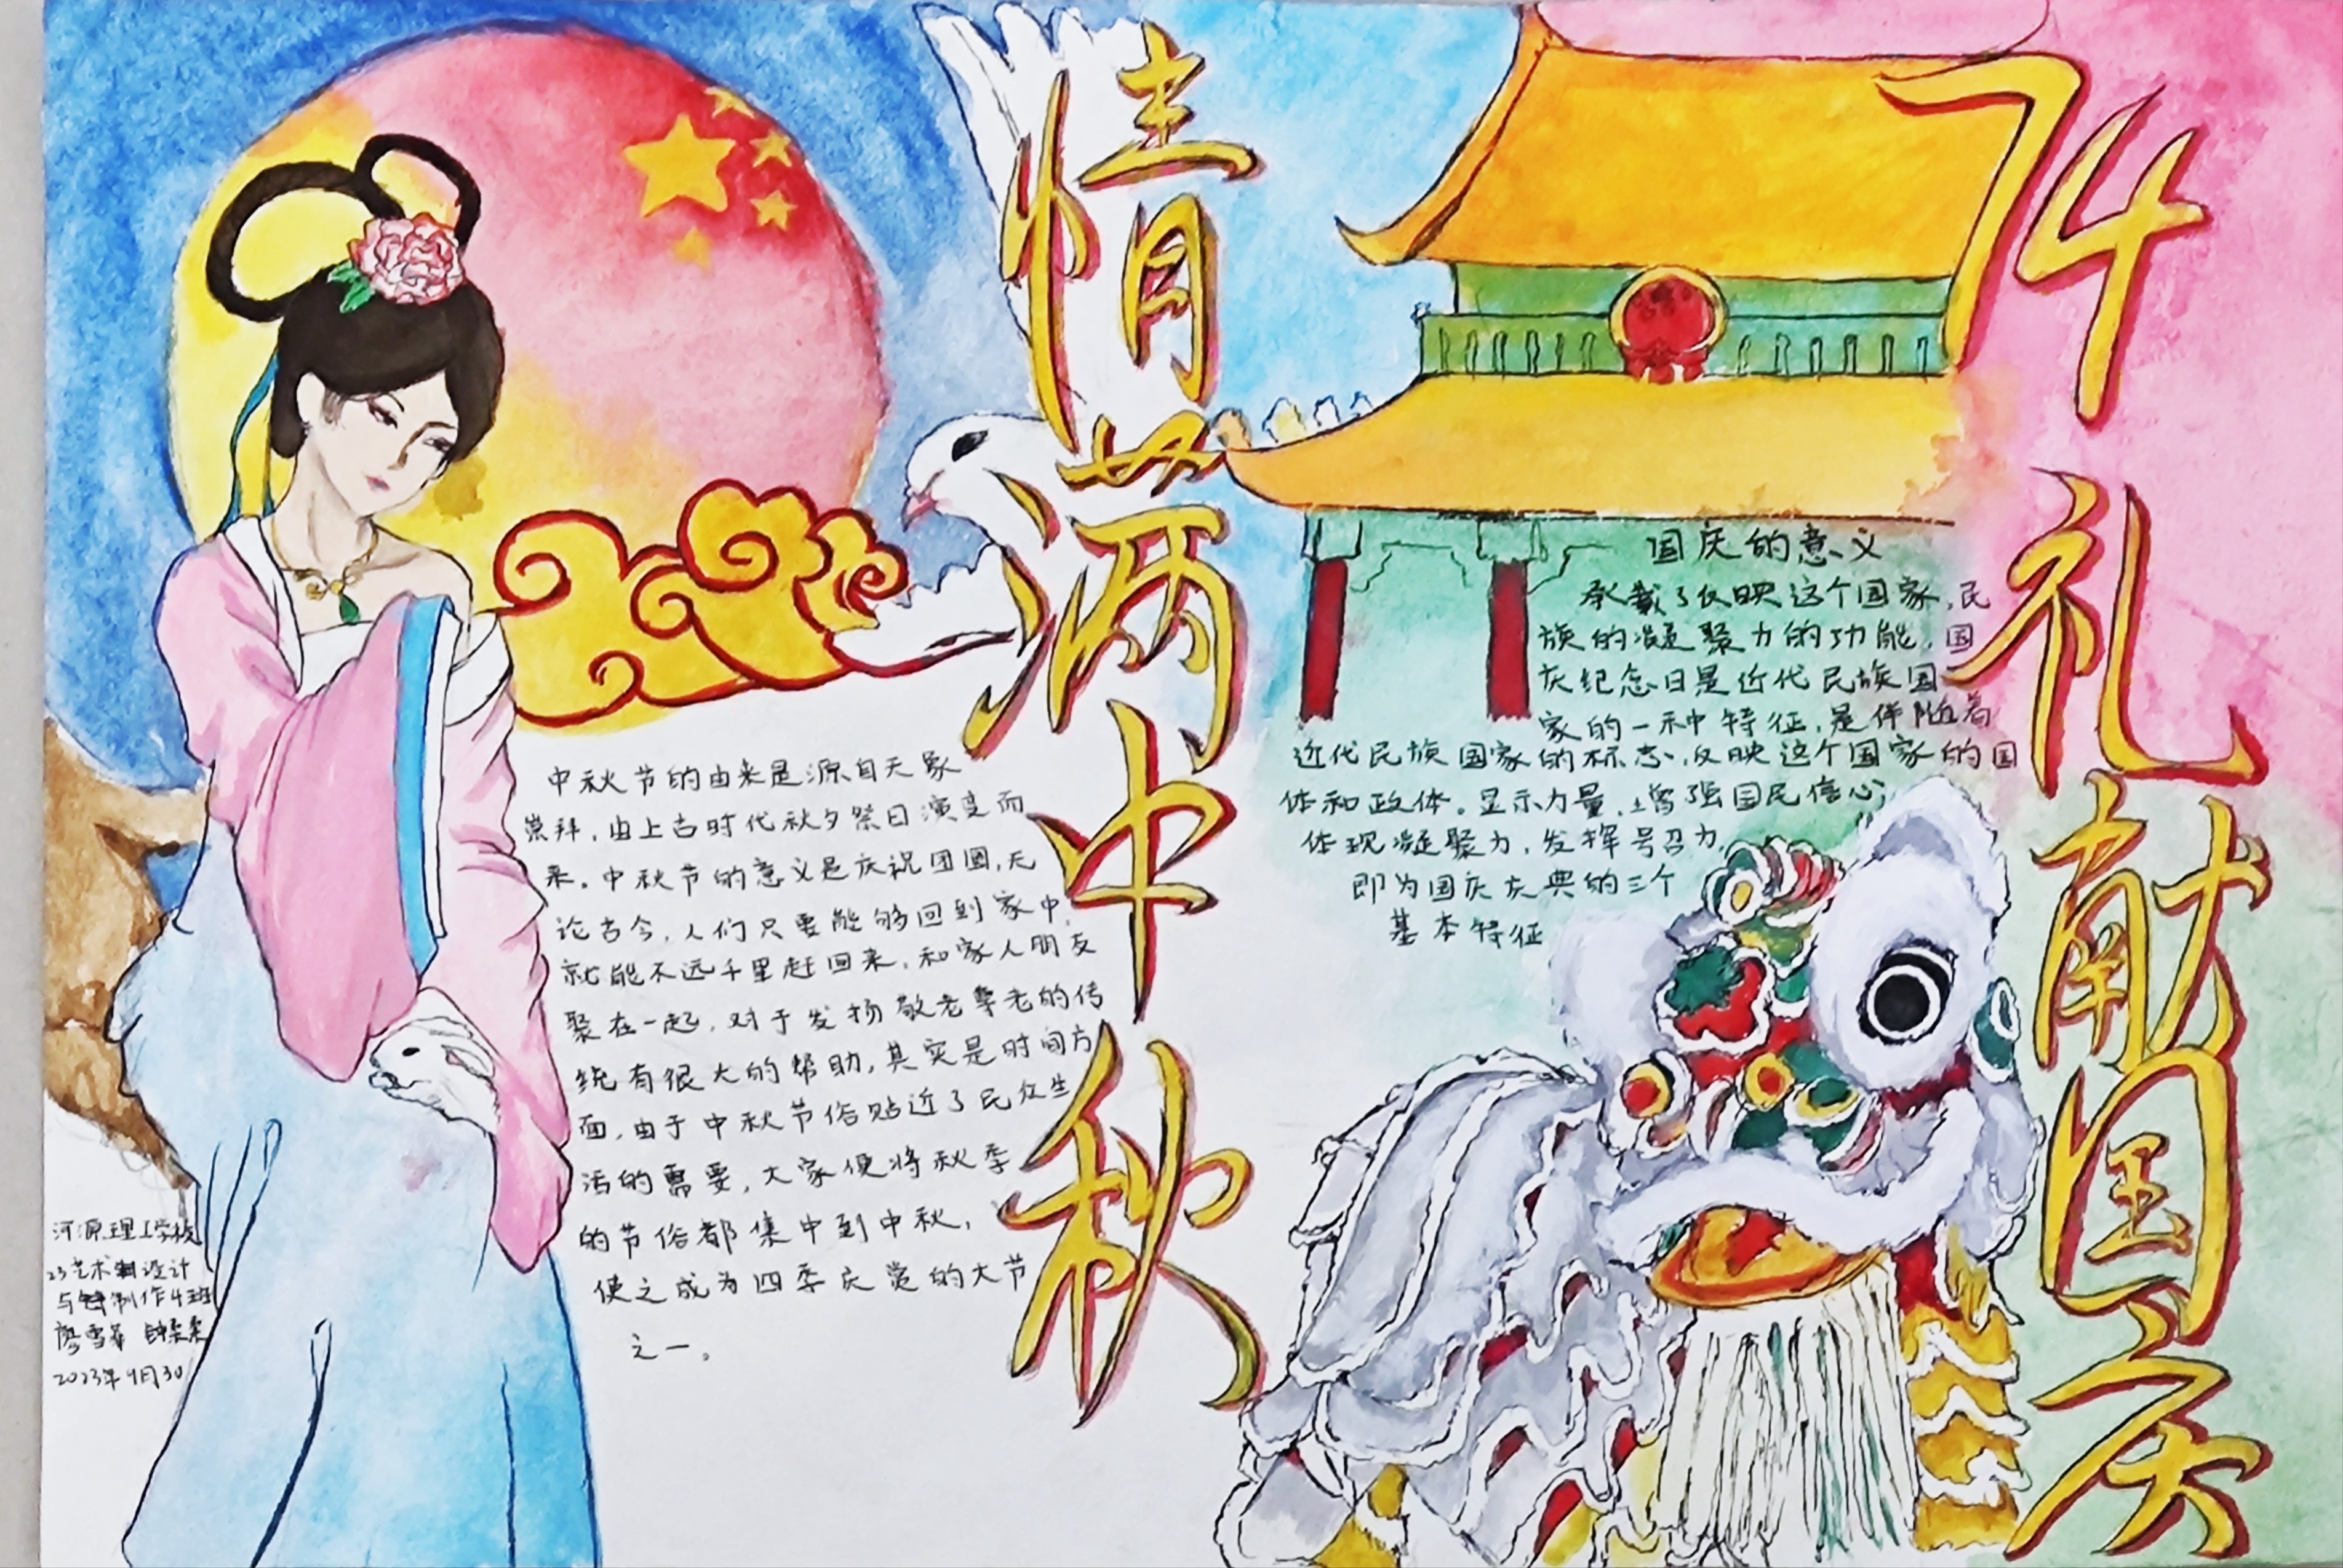 情满中秋
74礼献国庆
中秋节的由来是源自天象
崇拜,由上古时代秋夕祭日演变而
来。中秋节的意义是庆祝团圆,无
论古今,人们只要能够回到家中,
就能不远千里赶回来,和家人朋友
聚在一起,对于发扬敬老尊老的传
统有很大的帮助,其实是时间方
面,由于中秋节俗贴近了民众生
活的需要,大家便将秋季
的节俗都集中到中秋,
使之成为四季庆赏的大节
之一。
国庆的意义
承载了反映这个国家,民
族的凝聚力的功能,国
庆纪念日是近代民族国
家的一种特征,是伴随着
近代民族国家的标志,反映这个国家的国
体和政体。显示力量,增强国民信心,
体现凝聚力,发挥号召力,
即为国庆庆典的三个
基本特征
河源理工学校
23艺术设计
与制作4班
廖雪
2023年9月30